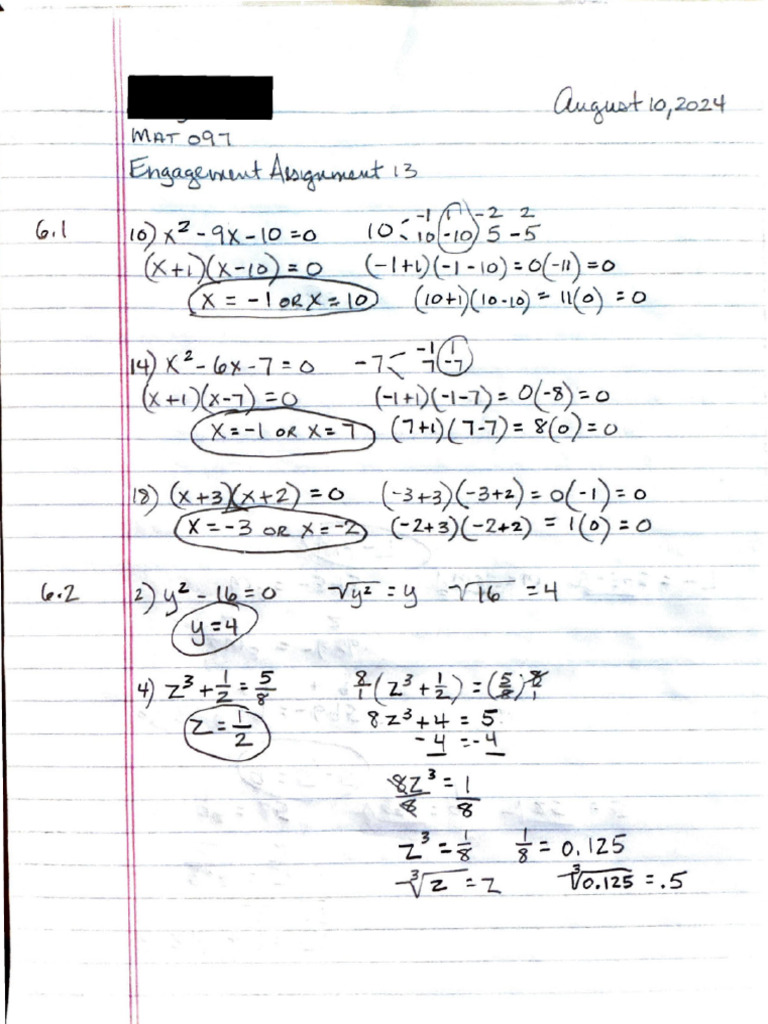 August 10, 2024
MAT 097
Engagement Assignment 13
6.1
10) x² - 9x - 10 = 0    10 < -1 1 -2 2
10 -10 5 -5
(x+1)(x-10) = 0    (-1+1)(-1-10) = 0(-11) = 0
x = -1 OR x = 10    (10+1)(10-10) = 11(0) = 0
14) x² - 6x - 7 = 0    -7 < -1 1
7 -7
(x+1)(x-7) = 0    (-1+1)(-1-7) = 0(-8) = 0
x = -1 OR x = 7    (7+1)(7-7) = 8(0) = 0
18) (x+3)(x+2) = 0    (-3+3)(-3+2) = 0(-1) = 0
x = -3 OR x = -2    (-2+3)(-2+2) = 1(0) = 0
6.2
2) y² - 16 = 0    √y² = y    √16 = 4
y = 4
4) z³ + 1/2 = 5/8    8/1 (z³ + 1/2) = (5/8) 8/1
z = 1/2    8z³ + 4 = 5
- 4 = - 4
8z³/8 = 1/8
z³ = 1/8    1/8 = 0.125
³√z = z    ³√0.125 = .5